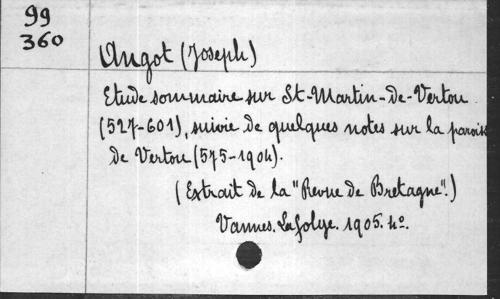 99
360
Angot (Joseph)
Etude sommaire sur St-Martin-de-Vertou
(527-601), suivie de quelques notes sur la paroiss
de Vertou (575-1904).
(Extrait de la "Revue de Bretagne".)
Vannes. Lafolye. 1905. 4o.